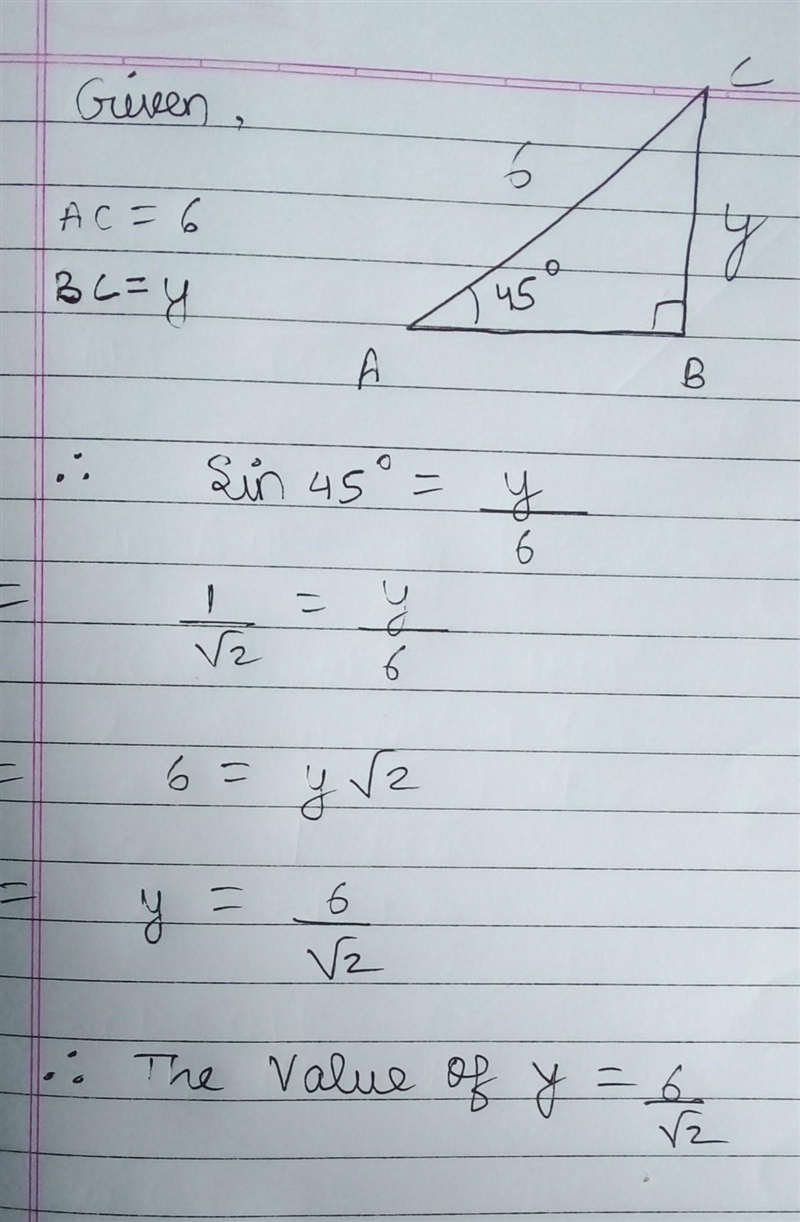 Given,
C
6
AC = 6
y
BC = y
45°
A
B
∴ Sin 45° = y/6
= 1/√2 = y/6
= 6 = y√2
= y = 6/√2
∴ The Value of y = 6/√2